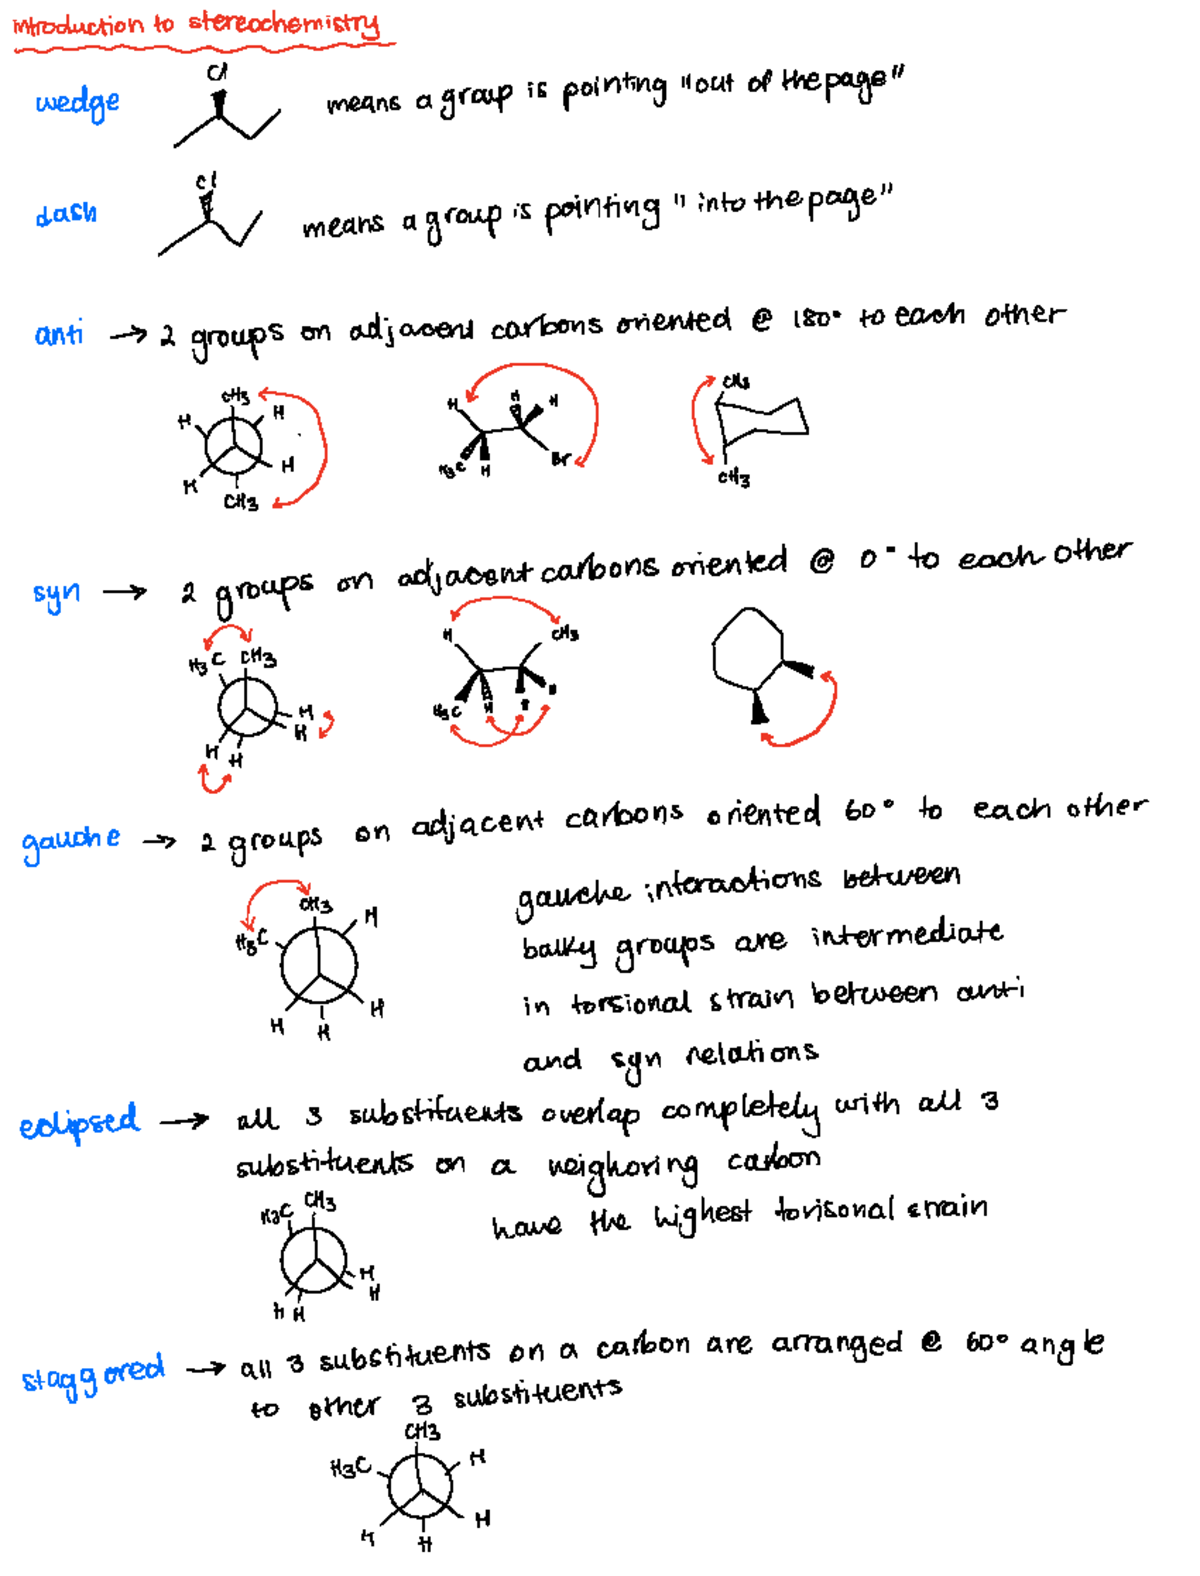 introduction to stereochemistry
Cl
wedge means a group is pointing "out of the page"
Cl
dash means a group is pointing " into the page"
anti → 2 groups on adjacent carbons oriented @ 180° to each other
CH3 H H H H CH3
H H H H3C H Br
CH3 CH3
syn → 2 groups on adjacent carbons oriented @ 0° to each other
H3C CH3 H H H H
H CH3 H3C H
gauche → 2 groups on adjacent carbons oriented 60° to each other
CH3 H H3C H H H
gauche interactions between
bulky groups are intermediate
in torsional strain between anti
and syn relations
eclipsed → all 3 substituents overlap completely with all 3
substituents on a neighoring carbon
H3C CH3 H H H H
have the highest torisonal strain
staggered → all 3 substituents on a carbon are arranged @ 60° angle
to other 3 substituents
CH3
H3C H
H H H